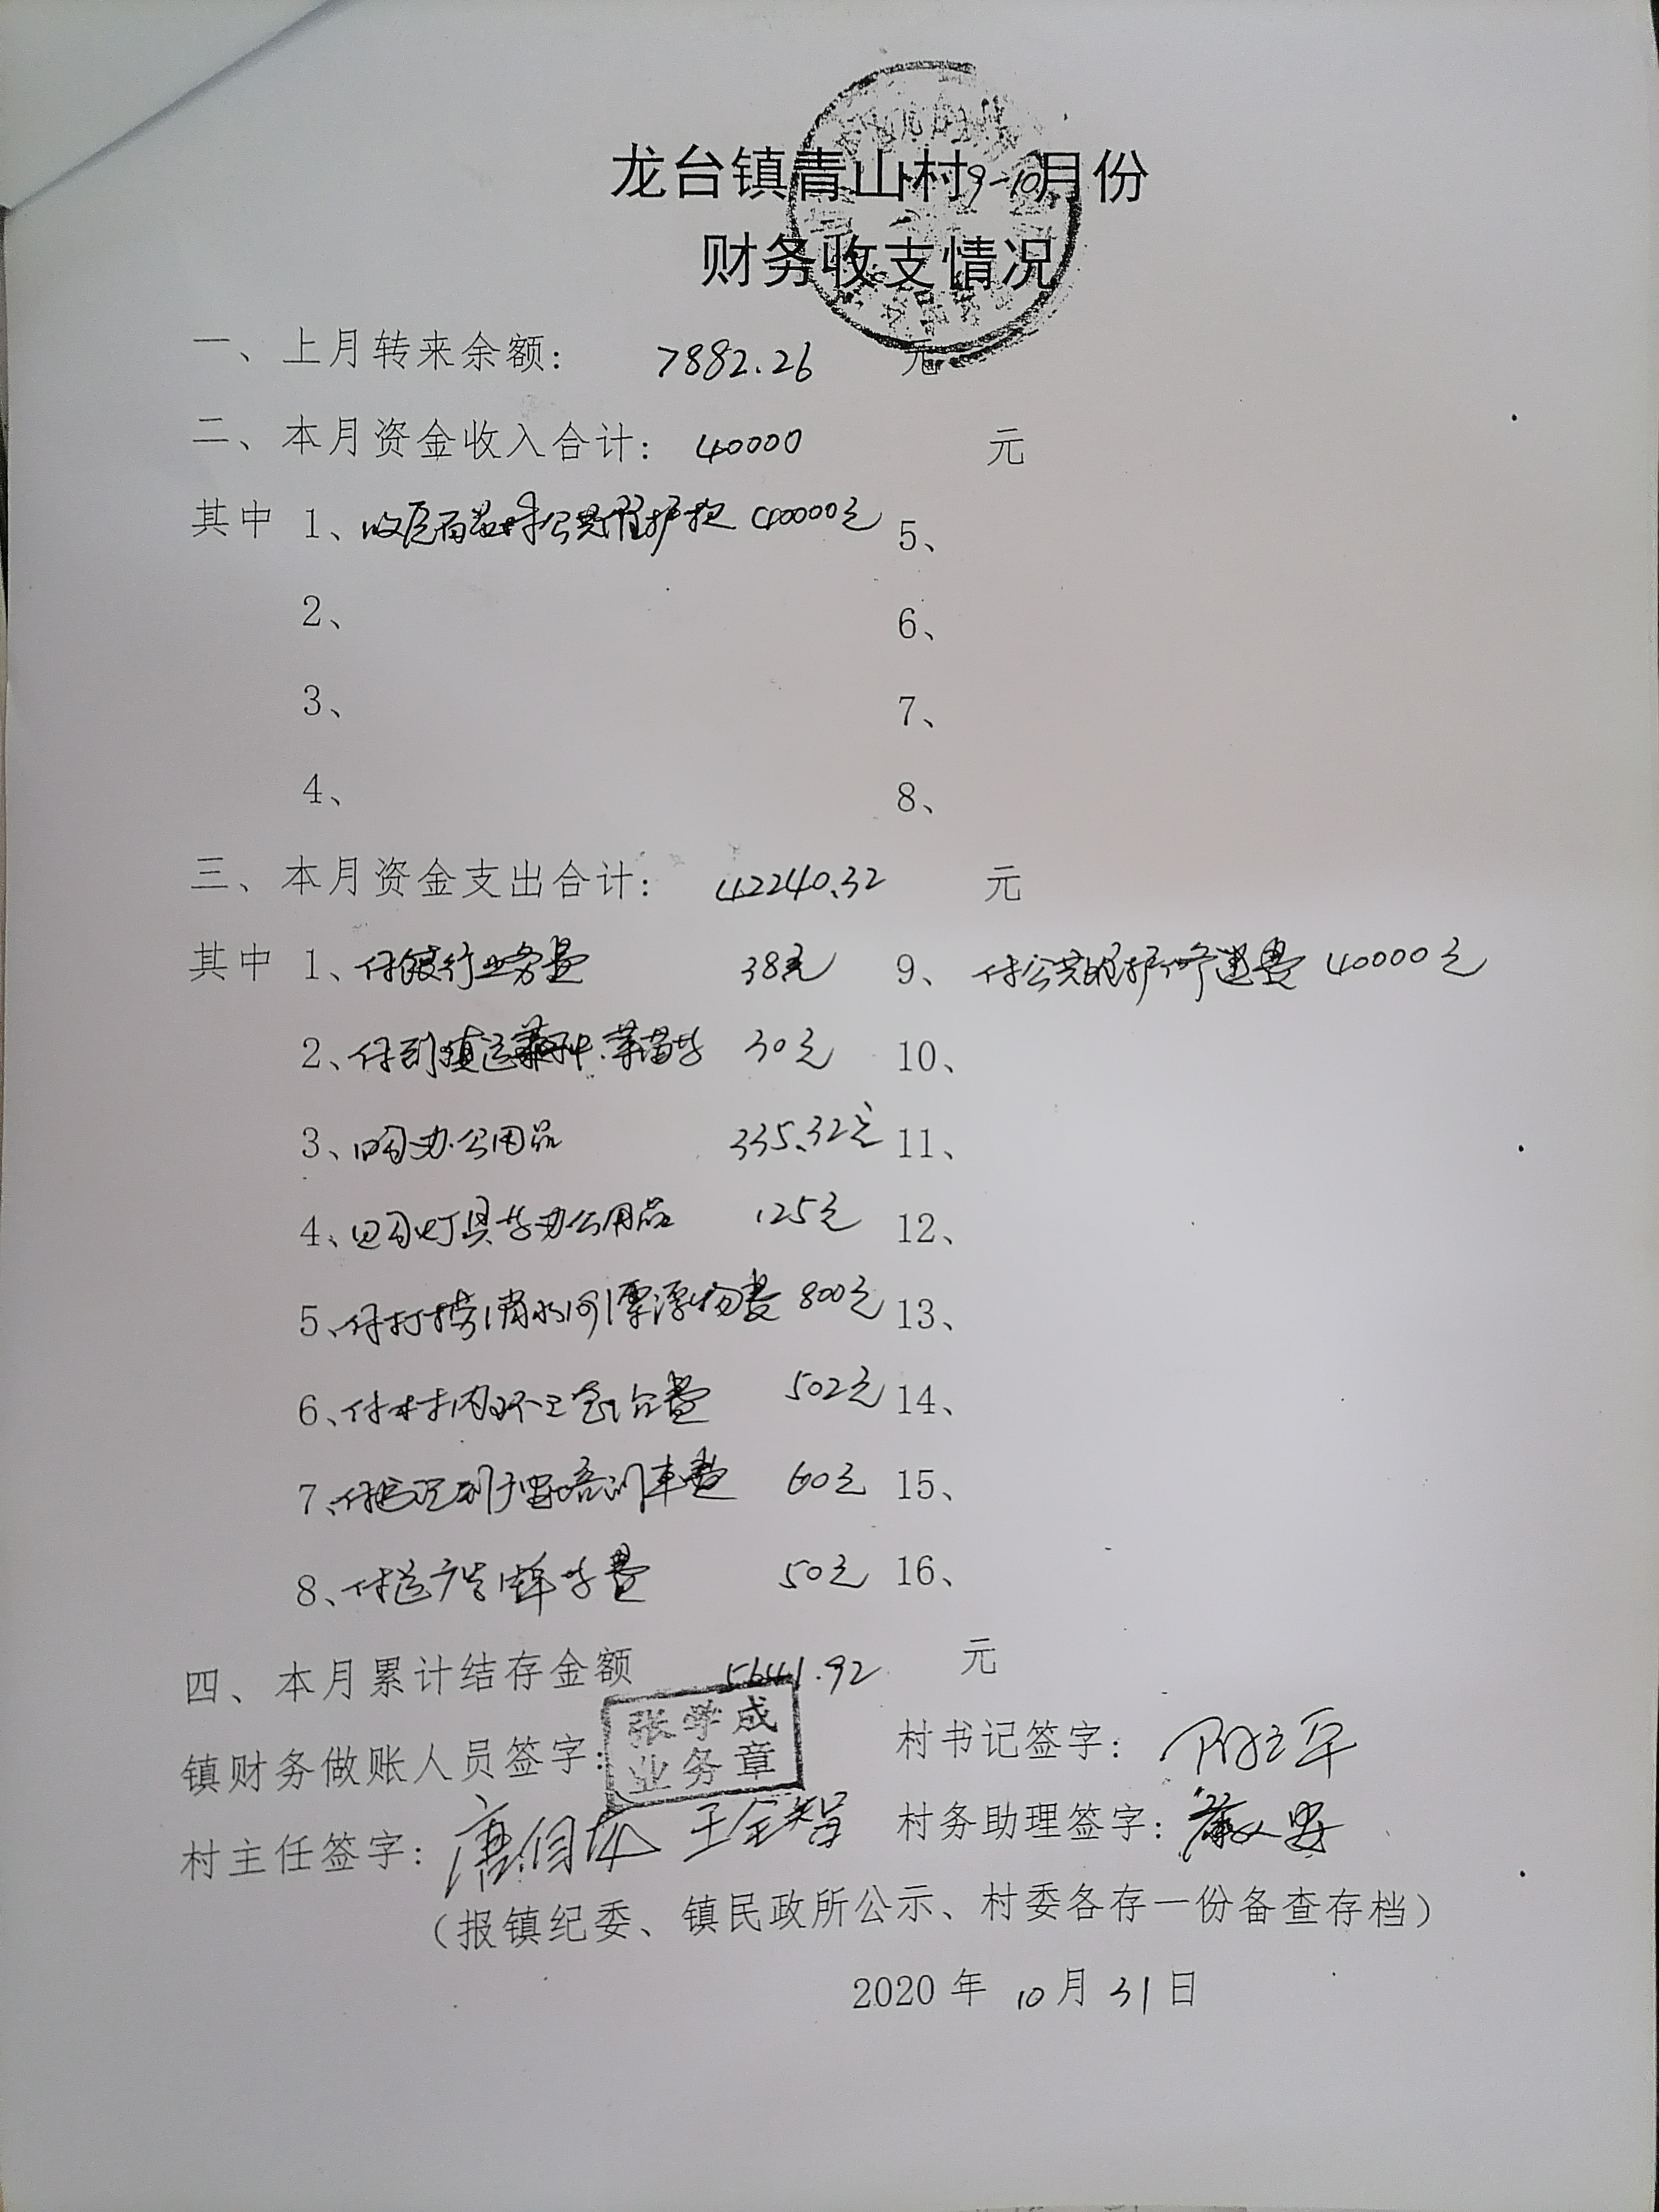 龙台镇青山村9-10月份
财务收支情况
一、上月转来余额： 7882.26 元
二、本月资金收入合计： 40000 元
其中 1、收 村公共 护款 40000元 5、
2、 6、
3、 7、
4、 8、
三、本月资金支出合计： 42240.32 元
其中 1、付银行业务费 38元 9、付公共 护修 费 40000元
2、付到镇运 菜苗等 30元 10、
3、购办公用品 335.32元 11、
4、购灯具等办公用品 125元 12、
5、付打捞清水河漂浮物费 800元 13、
6、付村内环卫 费 502元 14、
7、付 培训车费 60元 15、
8、付 广告 等费 50元 16、
四、本月累计结存金额 5641.92 元
镇财务做账人员签字： 张学成 业务章 村书记签字：
村主任签字： 唐 王全智 村务助理签字：
（报镇纪委、镇民政所公示、村委各存一份备查存档）
2020年 10月 31日